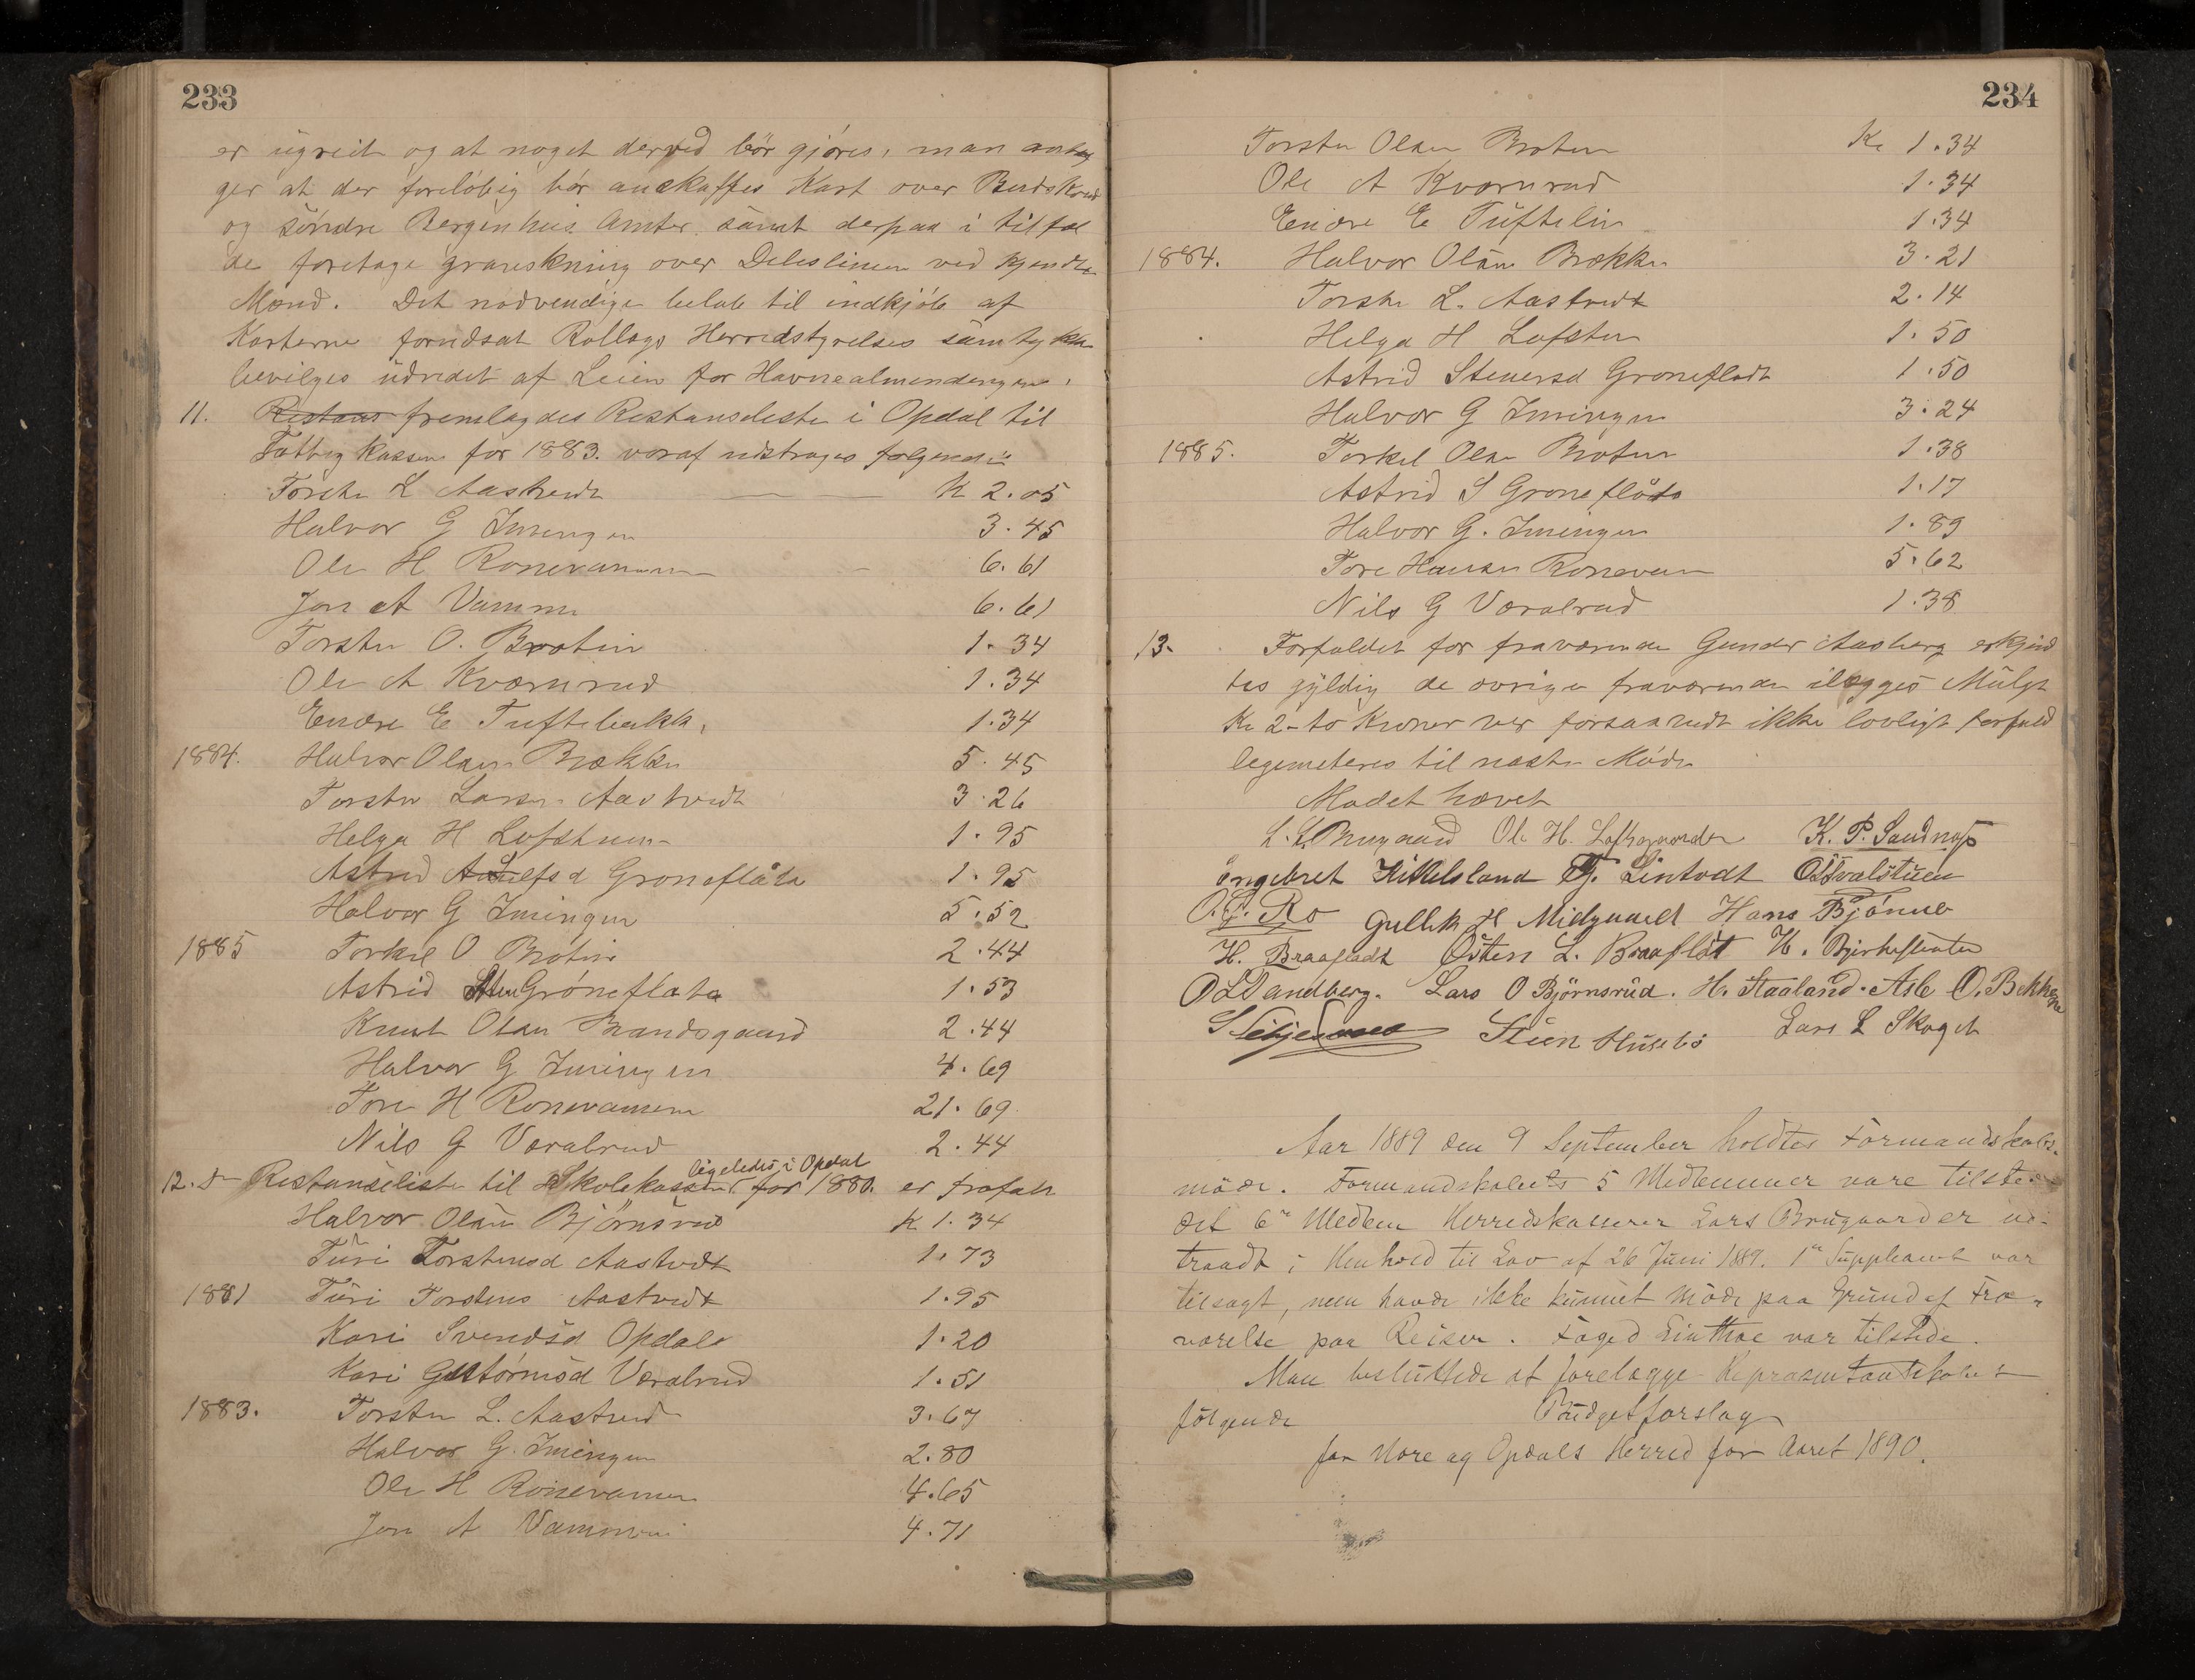 233
er ugreit og at noget derved bör gjöres, man anta
ger at der forelöbig bör anskaffes Kart over Buskerud
og söndre Bergenhus Amter samt derpaa i tilfæl
de foretage granskning over Deleslinien ved kjendte
Mænd. Det nödvendige belöb til indkjöb af
Karterne forudsat Rollags Herredstyrelses samtykke
bevilges udredet af Leien for Havnealmendingene.
11. Restans fremlagdes Restanseliste i Opdal til
Fattigkassen for 1883. voraf udstroges følgende
Torsten L Aastvedt K 2.05
Halvor G Imingen 3.45
Ole H Ronevammen 6.61
Jon A Vammen 6.61
Torsten O. Broten 1.34
Ole A Kværnrud 1.34
Endre E Tuftebakk 1.34
1884. Halvor Olsen Brække 5.45
Torsten Larsen Aastvedt 3.26
Helga H Lofsthuen 1.95
Astrid Groneflåta 1.95
Halvor G Imingen 5.52
1885 Torkel O Broten 2.44
Astrid Sten Gröneflata 1.53
Knut Olsen Brandsgaard 2.44
Halvor G Imingen 4.69
Tore H Ronevammen 21.69
Nils G Væralrud 2.44
ligeledes i Opdal
12. Restanseliste til Skolekassen for 1880. er frafaldt
Halvor Olsen Björnsrud K 1.34
Turi Torstensd Aastvedt 1.73
1881 Turi Torstens Aastvedt 1.95
Kari Svendsd Opdals 1.20
Kari Guttormsd Væralrud 1.51
1883. Torsten L. Aastved 3.67
Halvor G. Imingen 2.80
Ole H Ronevammen 4.65
Jon A Vammen 4.71
234
Torsten Olsen Broten Kr 1.34
Ole A Kværnrud 1.34
Endre E Tuftelin 1.34
1884. Halvor Olsen Brække 3.21
Torsten L. Aastvedt 2.14
Helga H Lofsten 1.50
Astrid Steuersd Groneflodt 1.50
Halvor G Imingen 3.24
1885. Torkel Olsen Broten 1.38
Astrid S Groneflåta 1.17
Halvor G. Imingen 1.89
Tore Hansen Ronevam 5.62
Nils G Væralrud 1.38
13. Forfaldet for fraværende Gunder Aasberg erkjend
tes gyldig de øvrige fraværende ilægges Mulgt
Kr 2-to Kroner ver forsaavidt ikke lovligt forfald
legemeteres til næste Möde
Mödet hævet
L. L. Brugaard Ole H. Loftsgaarden K. P. Sandnæs
Engebret Kittelsland T. Lintvedt O Tvalstuen
O. G. Ro Gullik H Midgaard Hans Bjönnes
H. Braafladt Östen L. Braaflåt H. Bjerkeflenten
O L Sandberg. Lars O Björnsrud. H. Staaland. Asle O. Bekkene
Steen Huusebö Lars L Skoget
Aar 1889 den 9 September holdtes Formandskabs-
möde. Formandskabets 5 Medlemmer vare tilstede
det 6te Medlem Herredskasserer Lars Brugaard er ud-
traadt i Henhold til Lov af 26 Juni 1889. 1te Suppleant var
tilsagt, men havde ikke kunnet möde paa Grund af Fra-
værelse paa Reiser. Foged Linthoe var tilstede.
Man besluttede at forelægge Repræsentantskabet
fölgende Budgetforslag
for Nore og Opdals Herred for Aaret 1890.